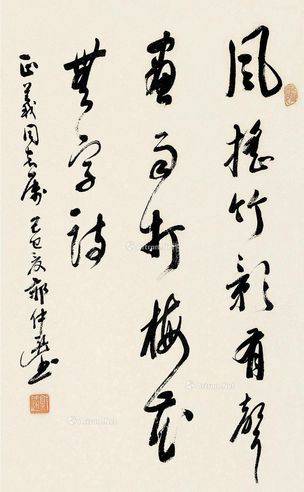 風搖竹影有聲
畫雨打梅花
無字詩
正義同志屬 己巳夏 郭仲選書